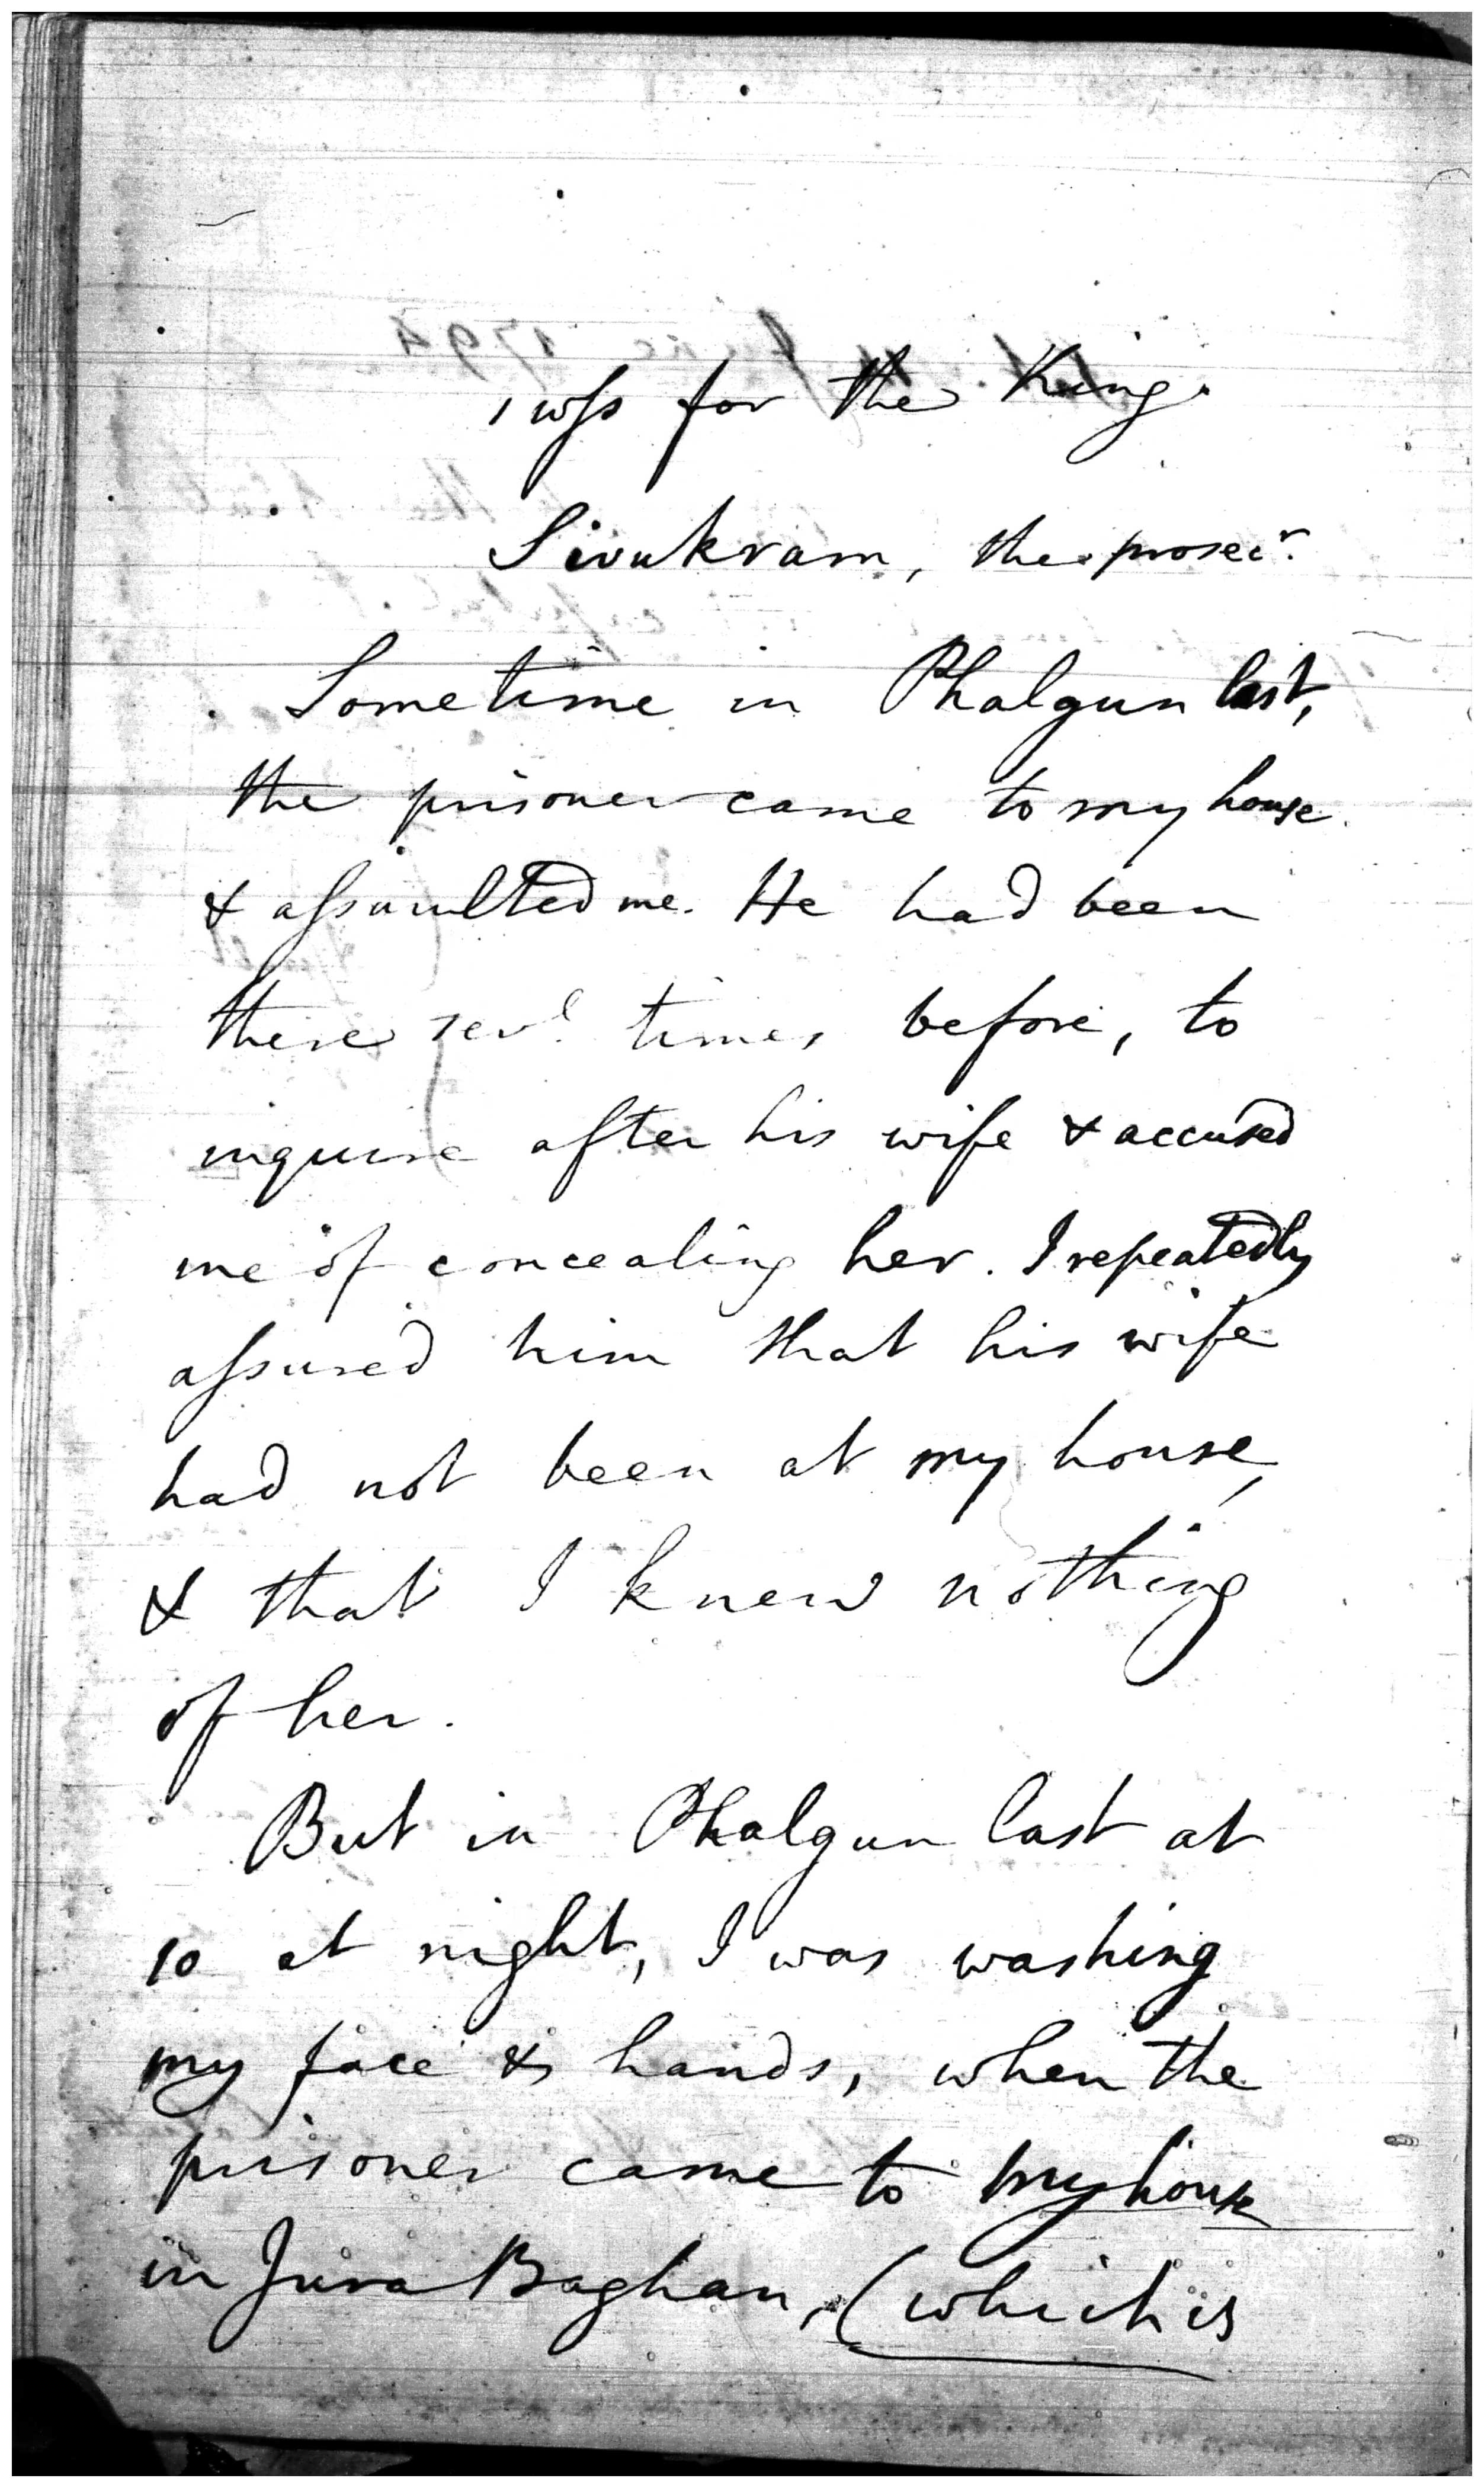 1 wss for the King.
Sivukram, the prosecr.
Sometime in Phalgun last,
the prisoner came to my house
& assaulted me. He had been
there sevl. times before, to
inquire after his wife & accused
me of concealing her. I repeatedly
assured him that his wife
had not been at my house,
& that I knew nothing
of her.
But in Phalgun last at
10 at night, I was washing
my face & hands, when the
prisoner came to my house
in Jura Baghan, (which is